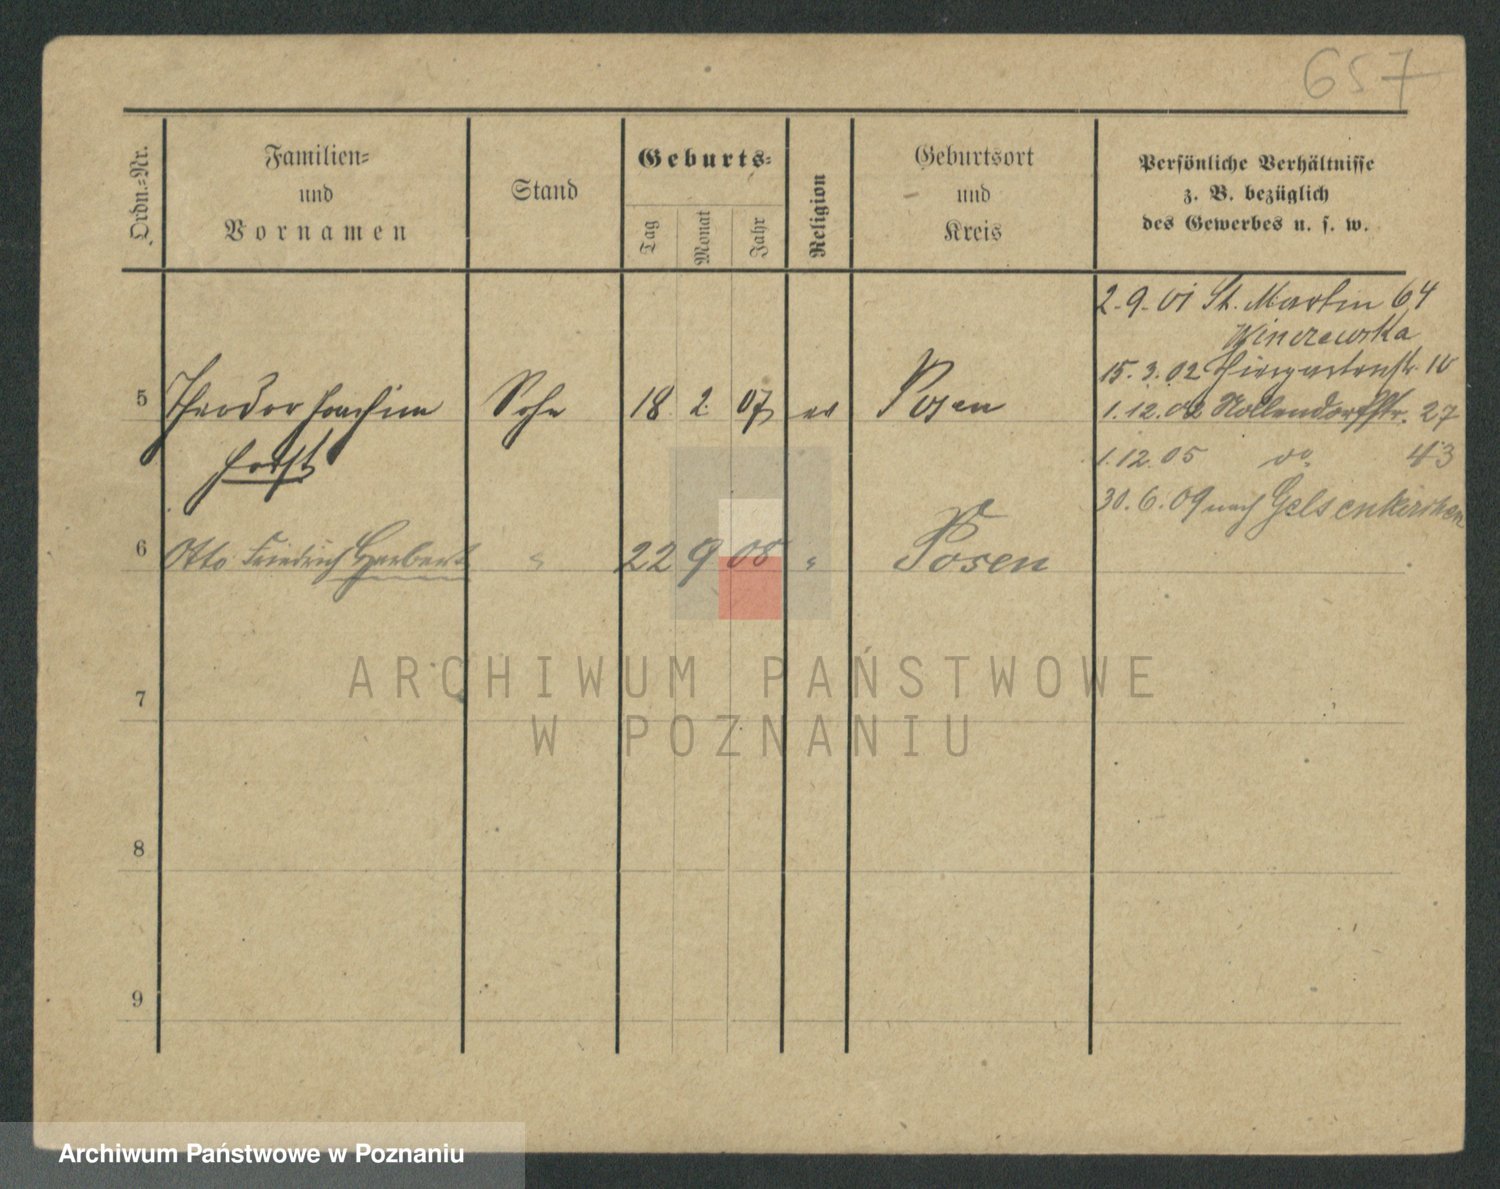 657
Ordn.=Nr.
Familien=
und
Vornamen
Stand
Geburts=
Tag
Monat
Jahr
Religion
Geburtsort
und
Kreis
Persönliche Verhältnisse
z. B. bezüglich
des Gewerbes u. s. w.
2.9.01 St. Martin 64
15.3.02 Tiergartenstr. 10
5 Theodor Joachim Sohn 18 2 07 ev Posen
1.12.02 Nollendorfstr. 27
Horst
1.12.05 do. 43
30.6.09 nach Gelsenkirchen
6 Otto Friedrich Herbert " 22 9 08 " Posen
ARCHIWUM PAŃSTWOWE
W POZNANIU
7
8
9
Archiwum Państwowe w Poznaniu